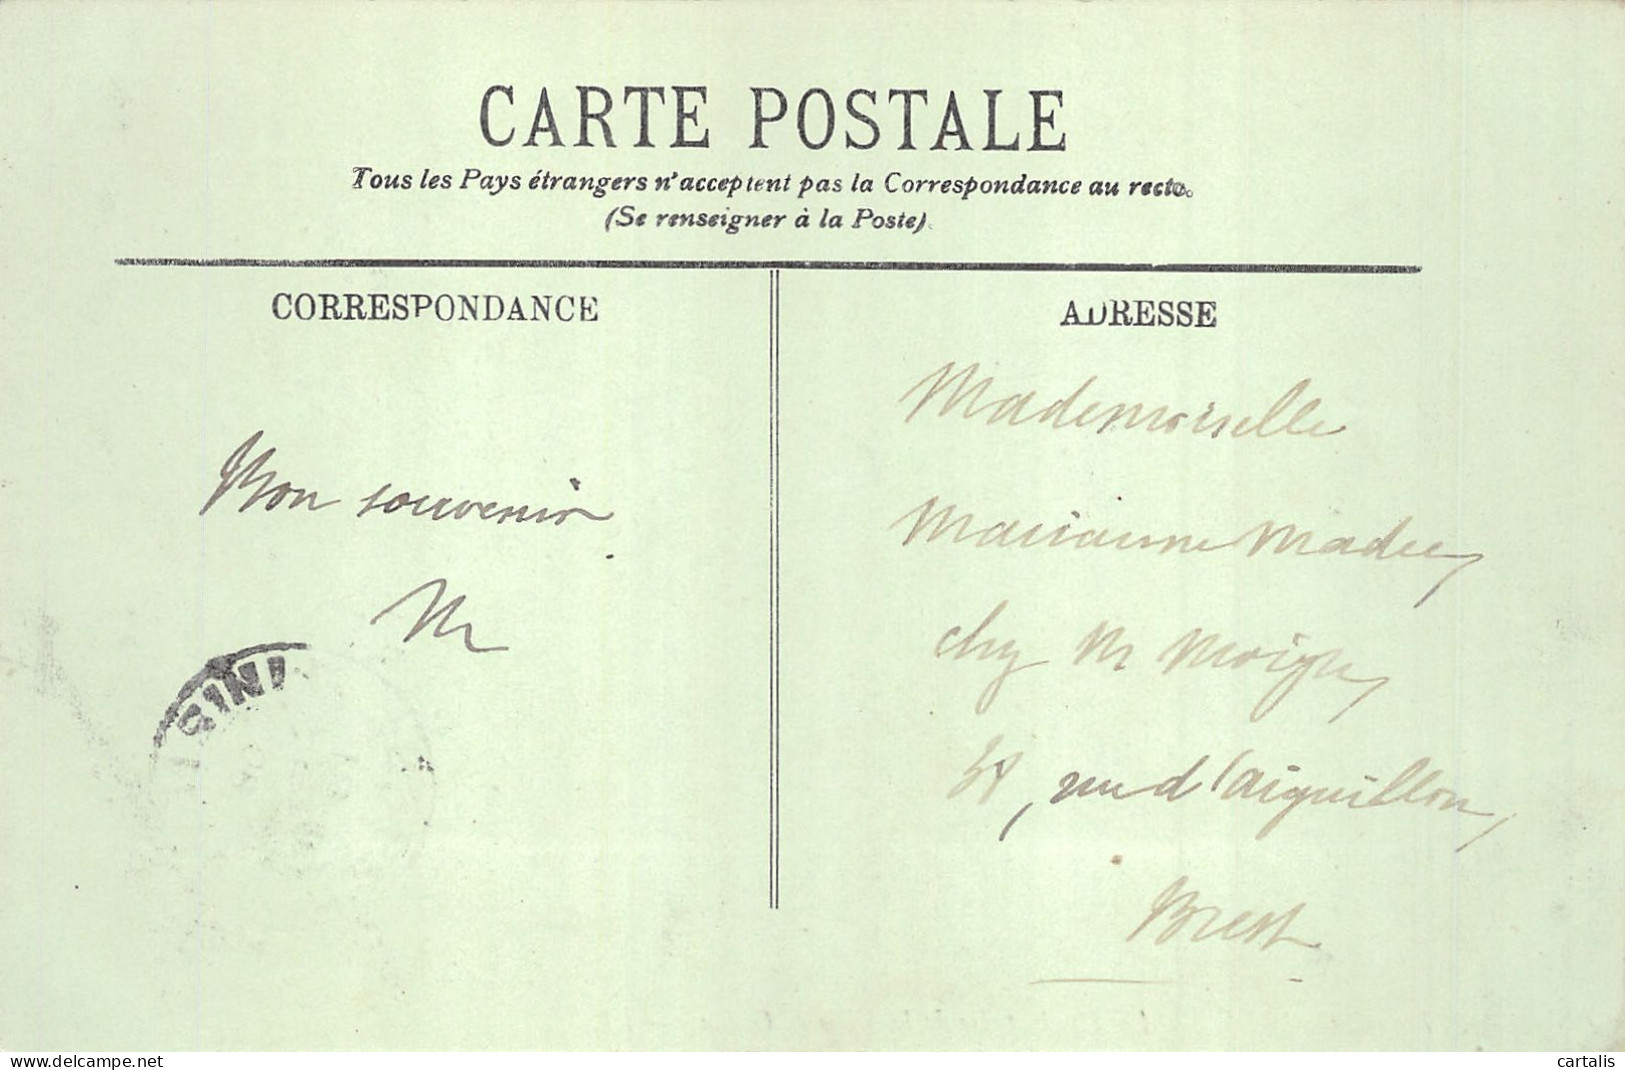 CARTE POSTALE
Tous les Pays étrangers n'acceptent pas la Correspondance au recto.
(Se renseigner à la Poste)
CORRESPONDANCE
Mon souvenir.
M
ADRESSE
Mademoiselle
Marianne Madec,
chez M
rue d'aiguillon,
Brest
www.delcampe.net
cartalis